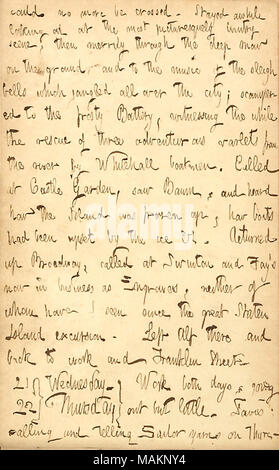 could no more be crossed. Stayed awhile
looking at at the most picturesquely wintry
scene; then merrily through the deep snow
on the ground, and to the music of the sleigh
bells which jangled all over the city; scamper-
ed to the frosty Battery, witnessing the while
the rescue of three adventurous varlets from
the river by Whitehall boatmen. Called
at Castle Garden, saw Baum, and heard
how the Island was frozen up, how boats
had been upset by the ice &c. Returned
up Broadway, called at Swinton and Fay's
now in business as Engravers, neither of
whom have I seen since the great Staten
Island excursion. Left Alf there and
back to work and Franklin Street.
21 } Wednesday. } Work both days, going
22 } Thursday } out but little.
calling and telling Sailor yarns on Thurs-
alamy
www.alamy.com
Image ID: MAKNY4